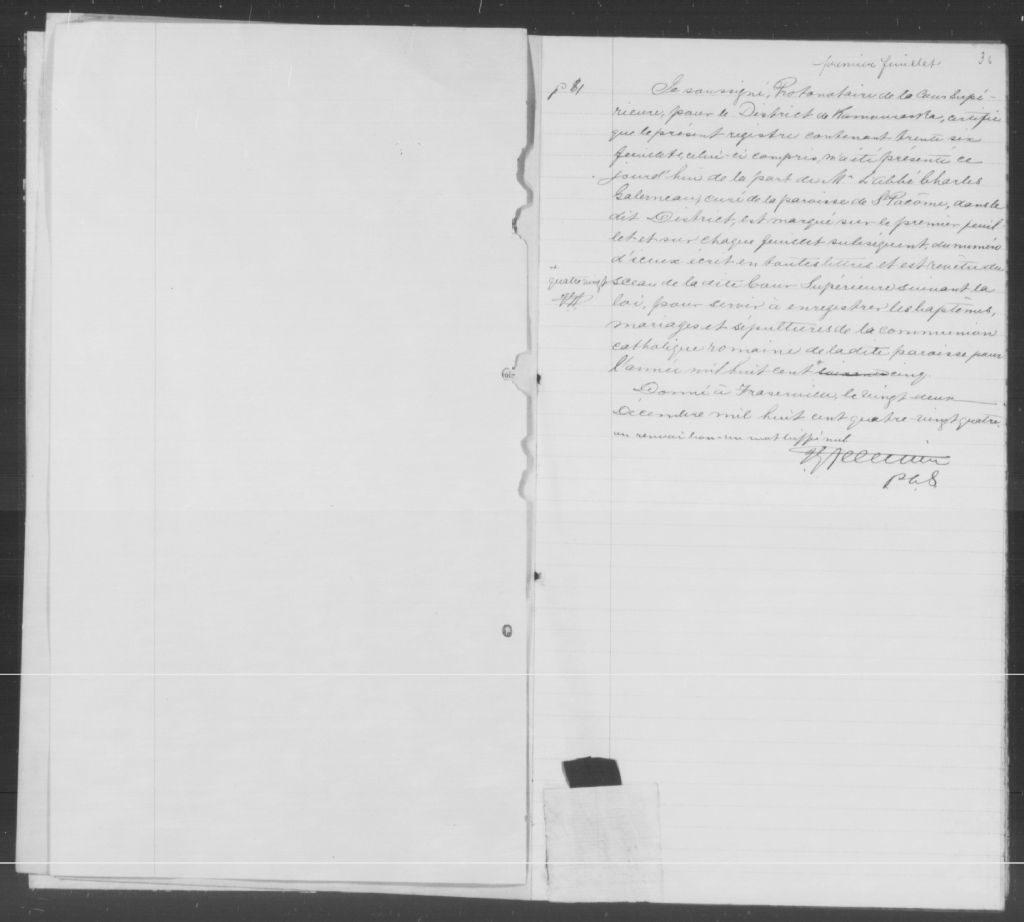 premier feuillet
36
p 81
Je soussigné, Protonotaire de la Cour Supé-
rieure, pour le District de Kamouraska, certifie
que le présent registre contenant trente six
feuillets, celui-ci compris, m'a été présenté ce
jourd'hui de la part de Mr L'abbé Charles
Galerneau, curé de la paroisse de St Pacôme, dans le
dit District, est marqué sur le premier feuil
let et sur chaque feuillet subséquent, du numéro
d'iceux écrit en toutes lettres et est revêtu du
sceau de la dite Cour Supérieure suivant la
loi, pour servir à enregistrer les baptêmes,
mariages et sépultures de la communion
catholique romaine de la dite paroisse pour
l'année mil huit cent cinq.
quatre vingt
Donné à Fraserville, le vingt deux
Décembre mil huit cent quatre-vingt quatre.
un renvoi bon-un mot biffé nul
P.C.S.